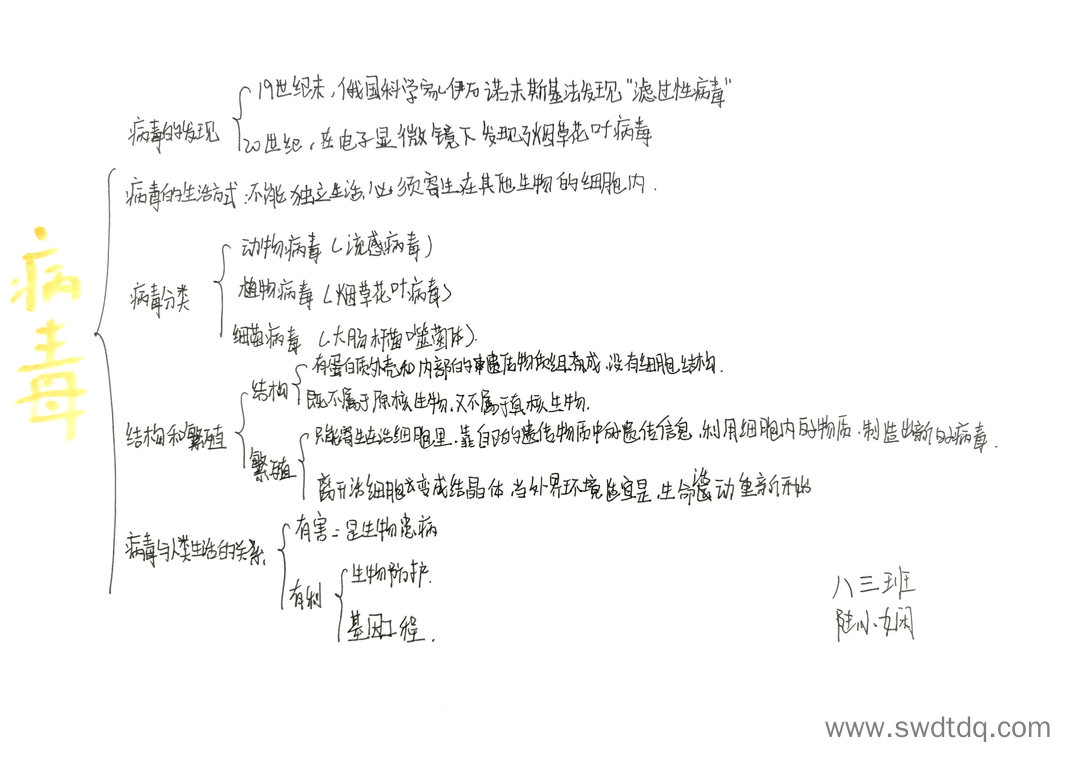 病毒
病毒的发现
19世纪末,俄国科学家伊万诺夫斯基法发现"滤过性病毒"
20世纪,在电子显微镜下发现了烟草花叶病毒
病毒的生活方式:不能独立生活,必须寄生在其他生物的细胞内.
病毒分类
动物病毒(流感病毒)
植物病毒(烟草花叶病毒)
细菌病毒(大肠杆菌噬菌体).
结构和繁殖
结构
有蛋白质外壳和内部的遗传物质组成,没有细胞结构.
既不属于原核生物,又不属于真核生物.
繁殖
只能寄生在活细胞里.靠自己的遗传物质中的遗传信息,利用细胞内的物质.制造出新的病毒.
离开活细胞变成结晶体.当外界环境适宜是,生命活动重新开始
病毒与人类生活的关系.
有害:是生物患病
有利
生物防护.
基因工程.
八三班
陆小娴
www.swdtdq.com